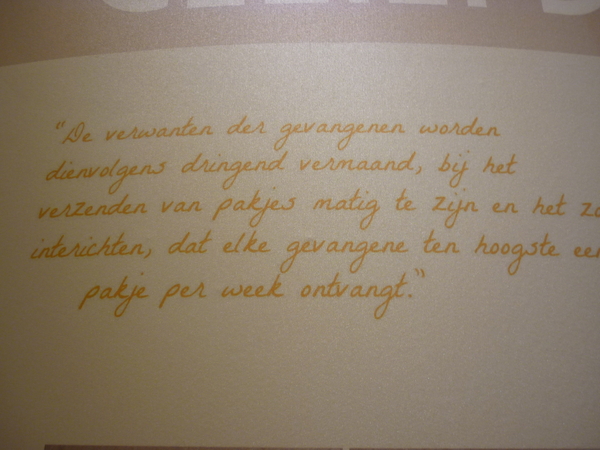 "De verwanten der gevangenen worden
dienvolgens dringend vermaand, bij het
verzenden van pakjes matig te zijn en het
interichten, dat elke gevangene ten hoogste
pakje per week ontvangt."